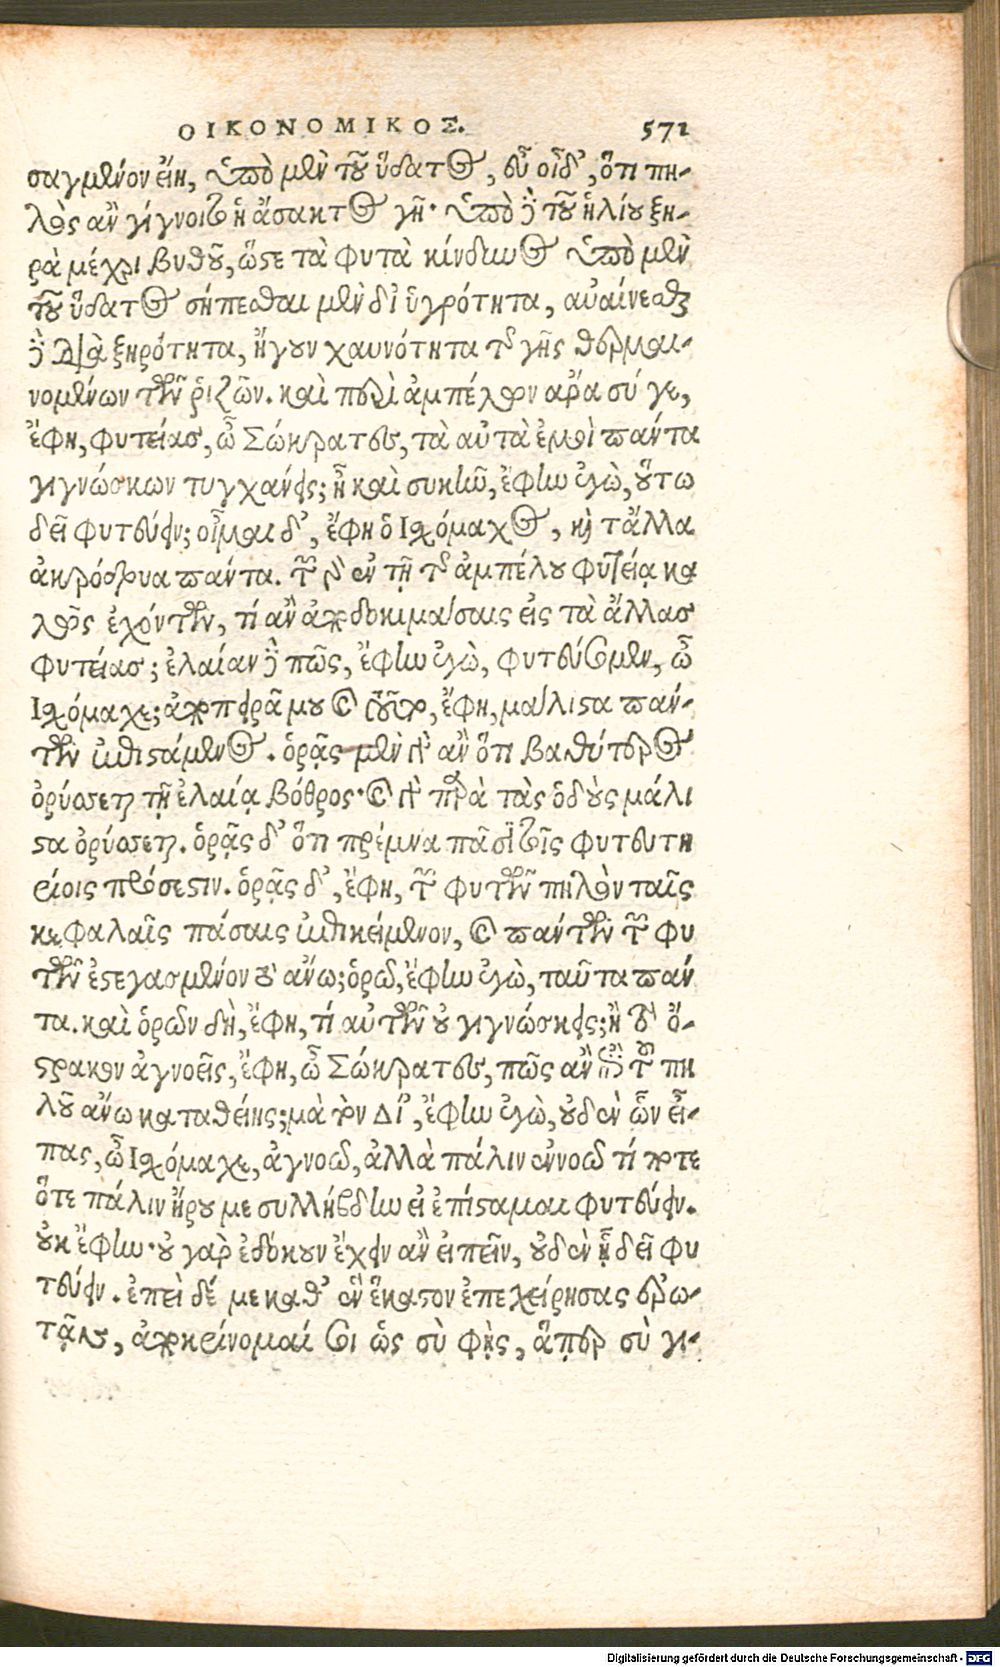 ΟΙΚΟΝΟΜΙΚΟΣ. 571
σαγμένον εἴη, ὑπὸ μὲν τοῦ ὕδατος, εὖ οἶδ', ὅτι πη-
λὸς ἂν γίγνοιτο ἡ ἄσακτος γῆ· ὑπὸ δὲ τοῦ ἡλίου ξη-
ρὰ μέχρι βυθοῦ, ὥστε τὰ φυτὰ κίνδυνος ὑπὸ μὲν
τοῦ ὕδατος σήπεσθαι μὲν δι' ὑγρότητα, αὐαίνεσθαι
δὲ διὰ ξηρότητα, ἤγουν χαυνότητα τῆς γῆς θερμαι-
νομένων τῶν ῥιζῶν. καὶ περὶ ἀμπέλων ἄρα σύ γε,
ἔφη, φυτείας, ὦ Σώκρατες, τὰ αὐτὰ ἐμοὶ πάντα
γιγνώσκων τυγχάνεις; ἦ καὶ συκῆν, ἔφην ἐγὼ, οὕτω
δεῖ φυτεύειν; οἶμαι δ', ἔφη ὁ Ισχόμαχος, καὶ τἄλλα
ἀκρόδρυα πάντα. τῶν γὰρ ἐν τῇ τῆς ἀμπέλου φυτείᾳ κα
λῶς ἐχόντων, τί ἂν ἀποδοκιμάσαις εἰς τὰ ἄλλας
φυτείας; ἐλαίαν δὲ πῶς, ἔφην ἐγὼ, φυτεύσομεν, ὦ
Ισχόμαχε; ἀποπειρᾶ μου καὶ τοῦτο, ἔφη, μάλιστα πάν-
των ἐπιστάμενος. ὁρᾷς μὲν γὰρ ἂν ὅτι βαθύτερος
ὀρύσσεται τῇ ἐλαίᾳ βόθρος· καὶ γὰρ παρὰ τὰς ὁδοὺς μάλι
στα ὀρύσσεται. ὁρᾷς δ' ὅτι πρέμνα πᾶσι τοῖς φυτευτη
ρίοις πρόσεστιν. ὁρᾷς δ', ἔφη, τῶν φυτῶν πηλὸν ταῖς
κεφαλαῖς πάσαις ἐπικείμενον, καὶ πάντων τῶν φυ
τῶν ἐστεγασμένον τὸ ἄνω; ὁρῶ, ἔφην ἐγὼ, ταῦτα πάν
τα. καὶ ὁρῶν δὴ, ἔφη, τί αὐτῶν οὐ γιγνώσκεις; ἢ τὸ ὄ-
στρακον ἀγνοεῖς, ἔφη, ὦ Σώκρατες, πῶς ἂν ἐπὶ τοῦ πη
λοῦ ἄνω καταθείης; μὰ τὸν Δί', ἔφην ἐγὼ, οὐδὲν ὧν εἶ-
πας, ὦ Ισχόμαχε, ἀγνοῶ, ἀλλὰ πάλιν ἐννοῶ τί ποτε
ὅτε πάλιν ἤρου με συλλήβδην εἰ ἐπίσταμαι φυτεύειν.
οὐκ ἔφην· οὐ γὰρ ἐδόκουν ἔχειν ἂν εἰπεῖν, οὐδὲν ᾗ δεῖ φυ
τεύειν. ἐπεὶ δέ με καθ' ἓν ἕκαστον ἐπεχείρησας ἐρω-
τᾷν, ἀποκρίνομαί σοι ὡς σὺ φῂς, ἅπερ σὺ γι-
Digitalisierung gefördert durch die Deutsche Forschungsgemeinschaft - DFG